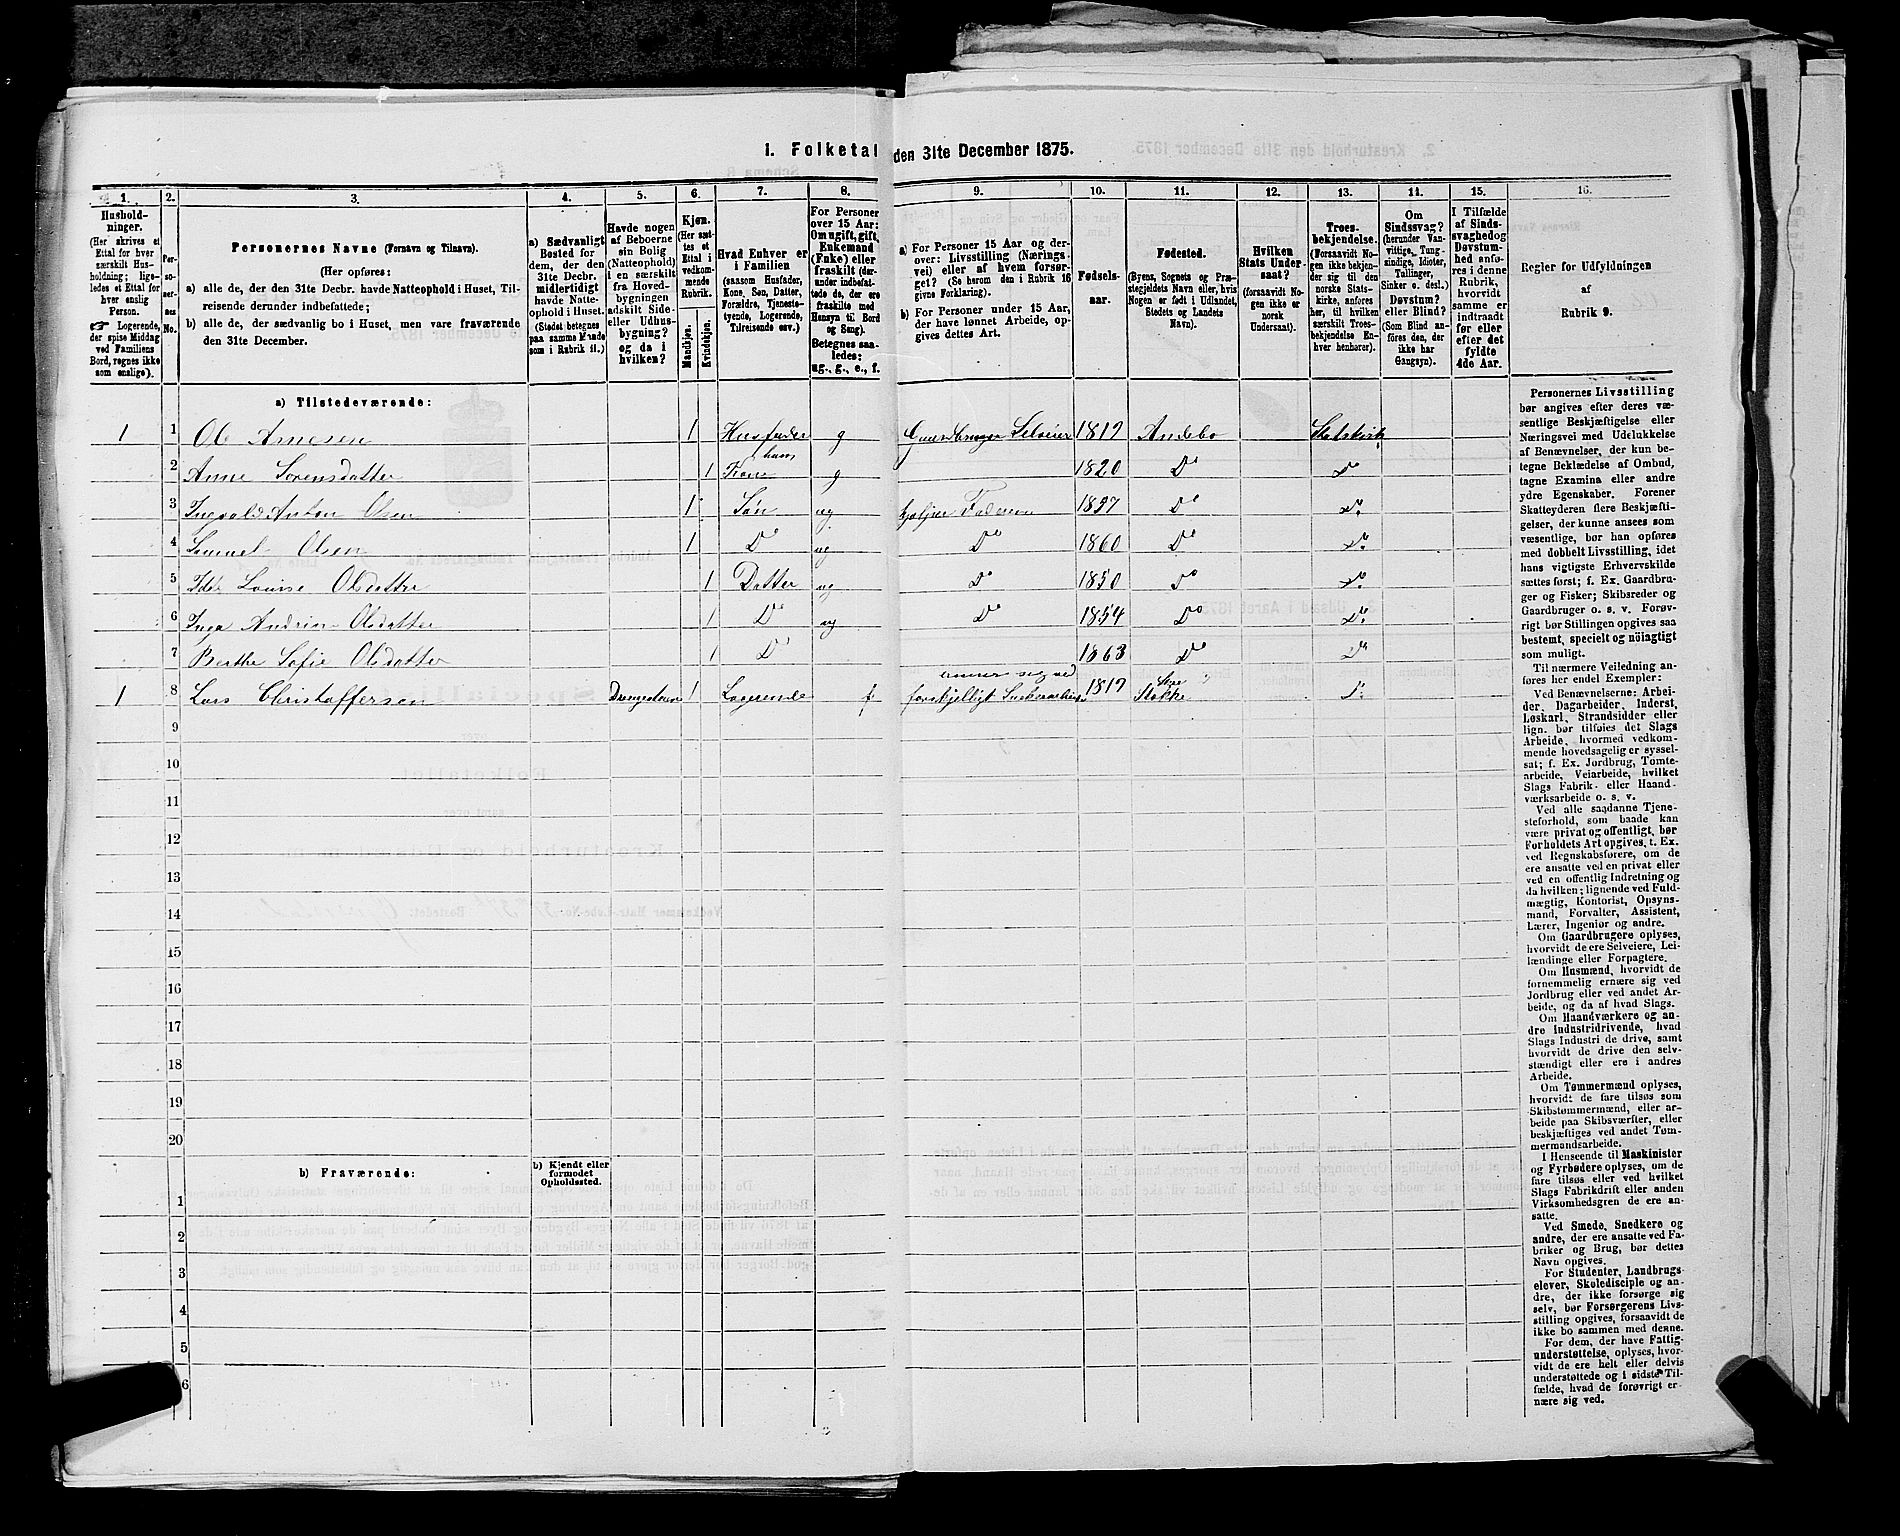 1. Folketal den 31te December 1875.
1. 2. 3. 4. 5. 6. 7. 8. 9. 10. 11. 12. 13. 14. 15. 16.
Hushold-
ninger.
(Her skrives et
Ettal for hver
særskilt Hus-
holdning; lige-
ledes et Ettal for
hver enslig
Person.
☞ Logerende,
der spise Middag
ved Familiens
Bord, regnes ikke
som enslige).
Per-
so-
ner-
nes
No.
Personernes Navne (Fornavn og Tilnavn).
(Her opføres:
a) alle de, der den 31te Decbr. havde Natteophold i Huset, Til-
reisende derunder indbefattede;
b) alle de, der sædvanlig bo i Huset, men vare fraværende
den 31te December.
a) Sædvanligt
Bosted for
dem, der den
31te Decbr.
midlertidigt
havde Natte-
ophold i Huset.
(Stedet betegnes
paa samme Maade
som i Rubrik 11.)
Havde nogen
af Beboerne
sin Bolig
(Natteophold)
i en særskilt
fra Hoved-
bygningen
adskilt Side-
eller Udhus-
bygning?
og da i
hvilken?
Kjøn.
(Her sæt-
tes et
Ettal i
vedkom-
mende
Rubrik.
Mandkjøn.
Kvindekjøn.
Hvad Enhver er
i Familien
(saasom Husfader,
Kone, Søn, Datter,
Forældre, Tjeneste-
tyende, Logerende,
Tilreisende osv.)
For Personer
over 15 Aar:
Om ugift, gift,
Enkemand
(Enke) eller
fraskilt (der-
under indbefat-
tede de, der ere
fraskilte med
Hensyn til Bord
og Seng).
Betegnes saa-
ledes:
ug., g., e., f.
a) For Personer 15 Aar og der-
over: Livsstilling (Nærings-
vei) eller af hvem forsør-
get? (Se herom den i Rubrik 16
givne Forklaring).
b) For Personer under 15 Aar,
der have lønnet Arbeide, op-
gives dettes Art.
Fødsels-
aar.
Fødested.
(Byens, Sognets og Præ-
stegjeldets Navn eller, hvis
Nogen er født i Udlandet,
Stedets og Landets
Navn).
Hvilken
Stats Under-
saat?
(forsaavidt No-
gen ikke er
norsk
Undersaat).
Troes-
bekjendelse.
(Forsaavidt No-
gen ikke bekjen-
der sig til den
norske Stats-
kirke, anføres
her, til hvilken
særskilt Troes-
bekjendelse En-
hver henhører).
Om
Sindssvag?
(herunder Van-
vittige, Tung-
sindige, Idioter,
Tullinger,
Sinker o. desl.)
Døvstum?
eller Blind?
(Som Blind an-
føres den, der
ikke har
Gangsyn).
I Tilfælde
af Sinds-
svaghed og
Døvstum-
hed anfø-
res i denne
Rubrik,
hvorvidt
samme er
indtraadt
før eller
efter det
fyldte
4de Aar.
Regler for Udfyldningen
af
Rubrik 9.
a) Tilstedeværende:
1 1 Ole Arnesen 1 Husfader g Gaardbruger Selveier 1819 Andebo Statskirk
hans
2 Anne Sorensdatter 1 Kone g 1820 Do Do
3 Ingvald Anton Olsen 1 Søn ug hjelper Faderen 1857 Do Do
4 Samuel Olsen 1 Do ug Do 1860 Do Do
5 Louise Olsdatter 1 Datter ug Do 1850 Do Do
6 Inga Andrine Olsdatter 1 Do ug Do 1854 Do Do
7 Berthe Sofie Olsdatter 1 Do 1863 Do Do
sig ved
1 8 Lars Christoffersen 1 Logerende f forskjelligt 1819 Stokke Do
9
10
11
12
13
14
15
16
17
18
19
20
b) Fraværende:
b) Kjendt eller
formodet
Opholdssted.
1
2
3
4
5
6
Personernes Livsstilling
bør angives efter deres væ-
sentlige Beskjæftigelse eller
Næringsvei med Udelukkelse
af Benævnelser, der kun be-
tegne Beklædelse af Ombud,
tagne Examina eller andre
ydre Egenskaber. Forener
Skatteyderen flere Beskjæfti-
gelser, der kunne ansees som
væsentlige, bør han opføres
med dobbelt Livsstilling, idet
hans vigtigste Erhvervskilde
sættes først; f. Ex. Gaardbru-
ger og Fisker; Skibsreder og
Gaardbruger o. s. v. Forøv-
rigt bør Stillingen opgives saa
bestemt, specielt og nöiagtigt
som muligt.
Til nærmere Veiledning an-
føres her endel Exempler:
Ved Benævnelserne: Arbei-
der, Dagarbeider, Inderst,
Løskarl, Strandsidder eller
lign. bør tilføies det Slags
Arbeide, hvormed vedkom-
mende hovedsagelig er syssel-
sat; f. Ex. Jordbrug, Tomte-
arbeide, Veiarbeide, hvilket
Slags Fabrik- eller Haand-
værksarbeide o. s. v.
Ved alle saadanne Tjene-
steforhold, som baade kan
være privat og offentligt, bør
Forholdets Art opgives, t. Ex.
ved Regnskabsførere, om de
ere ansatte ved en privat eller
ved en offentlig Indretning og
da hvilken; lignende ved Fuld-
mægtig, Kontorist, Opsyns-
mand, Forvalter, Assistent,
Lærer, Ingeniør og andre.
Om Gaardbrugere oplyses,
hvorvidt de ere Selveiere, Lei-
lændinge eller Forpagtere.
Om Husmænd, hvorvidt de
fornemmelig ernære sig ved
Jordbrug eller ved andet Ar-
beide, og da af hvad Slags.
Om Haandværkere og an-
dre industridrivende, hvad
Slags Industri de drive, samt
hvorvidt de drive den selv-
stændigt eller ere i andres
Arbeide.
Om Tømmermænd oplyses,
hvorvidt de fare tilsøs som
Skibstømmermænd, eller ar-
beide paa Skibsværfter, eller
beskjæftiges ved andet Tøm-
mermandsarbeide.
I Henseende til Maskinister
og Fyrbødere oplyses, om de
fare tilsøs eller ved hvilket
Slags Fabrikdrift eller anden
Virksomhedsgren de ere an-
satte.
Ved Smede, Snedkere og
andre, der ere ansatte ved Fa-
briker og Brug, bør dettes
Navn opgives.
For Studenter, Landbrugs-
elever, Skoledisciple og an-
dre, der ikke forsørge sig
selv, bør Forsørgerens Livs-
stilling opgives, forsaavidt de
ikke bo sammen med denne.
For dem, der have Fattig-
understøttelse, oplyses, hvor-
vidt de ere helt eller delvis
understøttede og i sidste Til-
fælde, hvad de forøvrigt er-
nære sig ved.